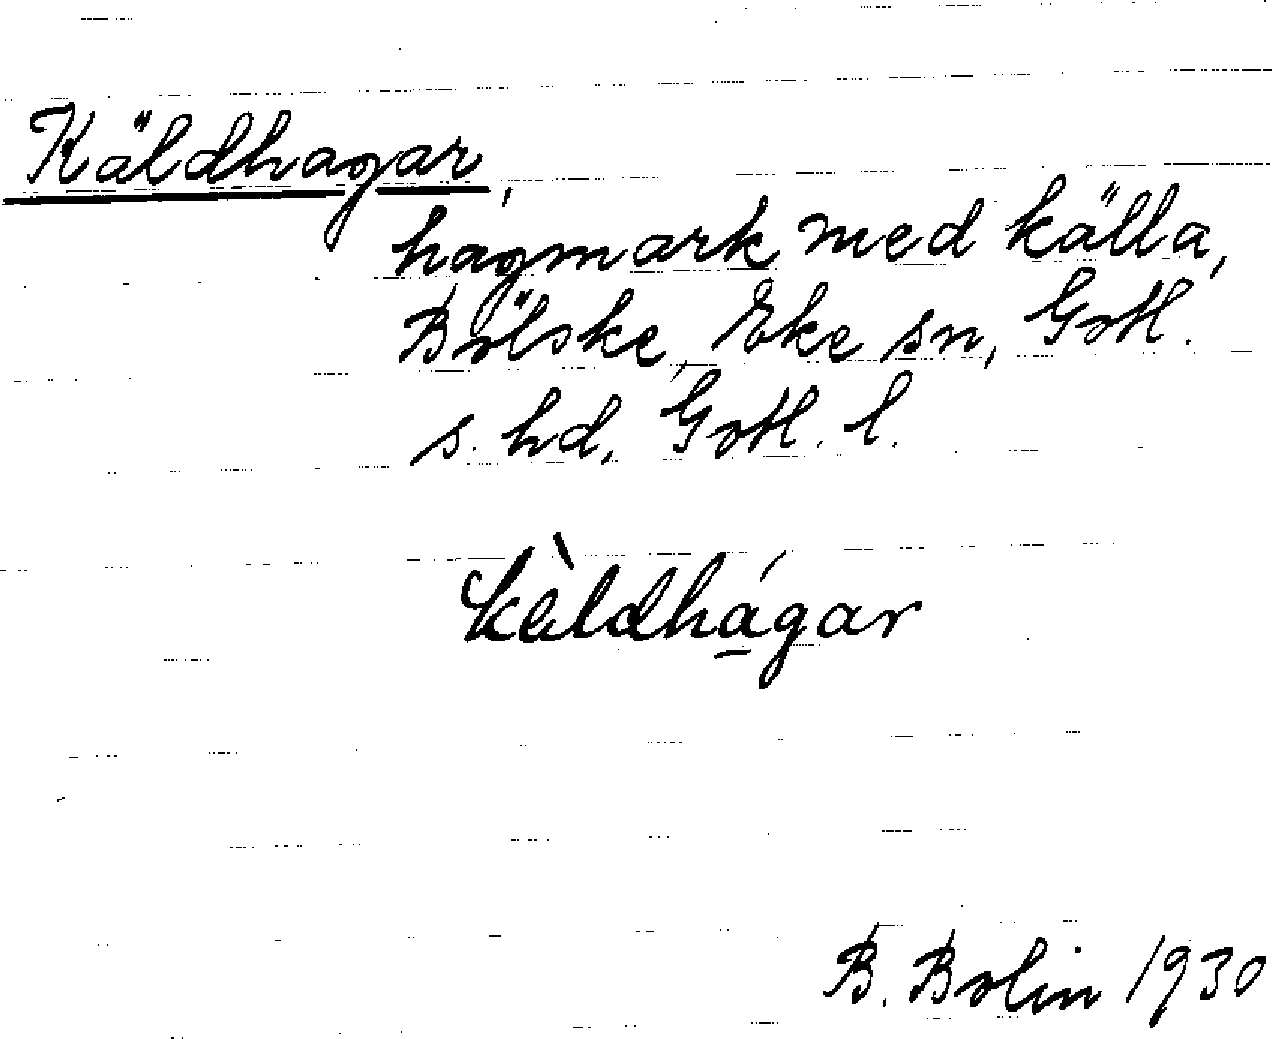 Käldhagar,
hagmark med källa,
Bölske, Eke sn, Gotl.
s. hd, Gotl. l.
kὲldhá̠gar
B. Bolin 1930